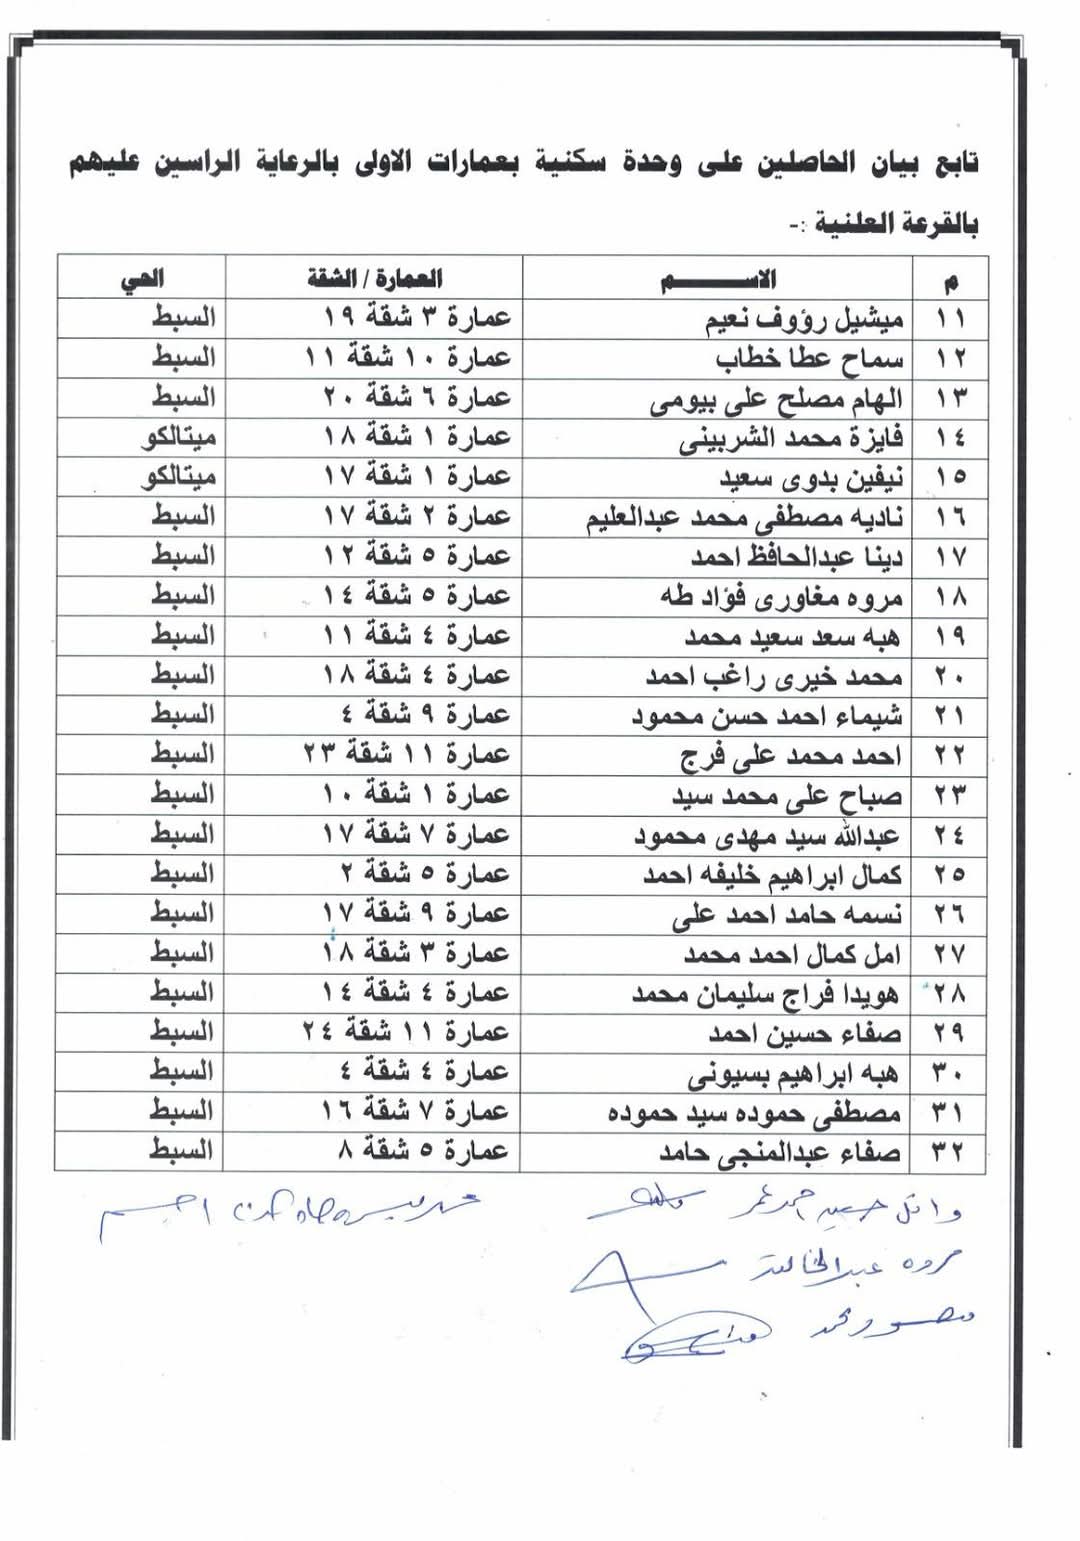 تابع بيان الحاصلين على وحدة سكنية بعمارات الاولى بالرعاية الراسين عليهم
بالقرعة العلنية :-
م الاســـــــم العمارة / الشقة الحي
١١ ميشيل رؤوف نعيم عمارة ٣ شقة ١٩ السبط
١٢ سماح عطا خطاب عمارة ١٠ شقة ١١ السبط
١٣ الهام مصلح على بيومى عمارة ٦ شقة ٢٠ السبط
١٤ فايزة محمد الشربينى عمارة ١ شقة ١٨ ميتالكو
١٥ نيفين بدوى سعيد عمارة ١ شقة ١٧ ميتالكو
١٦ ناديه مصطفى محمد عبدالعليم عمارة ٢ شقة ١٧ السبط
١٧ دينا عبدالحافظ احمد عمارة ٥ شقة ١٢ السبط
١٨ مروه مغاورى فؤاد طه عمارة ٥ شقة ١٤ السبط
١٩ هبه سعد سعيد محمد عمارة ٤ شقة ١١ السبط
٢٠ محمد خيرى راغب احمد عمارة ٤ شقة ١٨ السبط
٢١ شيماء احمد حسن محمود عمارة ٩ شقة ٤ السبط
٢٢ احمد محمد على فرج عمارة ١١ شقة ٢٣ السبط
٢٣ صباح على محمد سيد عمارة ١ شقة ١٠ السبط
٢٤ عبدالله سيد مهدى محمود عمارة ٧ شقة ١٧ السبط
٢٥ كمال ابراهيم خليفه احمد عمارة ٥ شقة ٢ السبط
٢٦ نسمه حامد احمد على عمارة ٩ شقة ١٧ السبط
٢٧ امل كمال احمد محمد عمارة ٣ شقة ١٨ السبط
٢٨ هويدا فراج سليمان محمد عمارة ٤ شقة ١٤ السبط
٢٩ صفاء حسين احمد عمارة ١١ شقة ٢٤ السبط
٣٠ هبه ابراهيم بسيونى عمارة ٤ شقة ٤ السبط
٣١ مصطفى حموده سيد حموده عمارة ٧ شقة ١٦ السبط
٣٢ صفاء عبدالمنجى حامد عمارة ٥ شقة ٨ السبط
وائل حسين احمد عمر
مروه عبدالخالق
منصور محمد